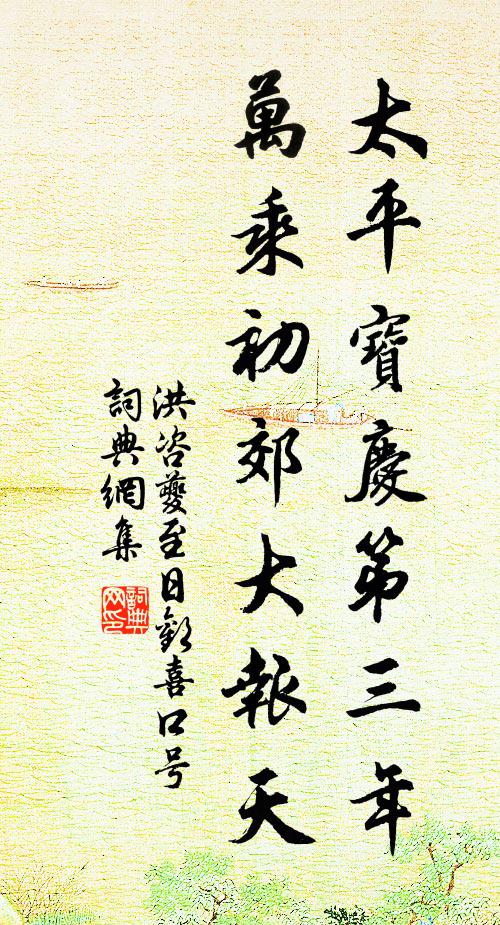 太平寶慶第三年
萬乘初郊大報天
洪咨夔至日歡喜口号
詞典網集
詞典网印